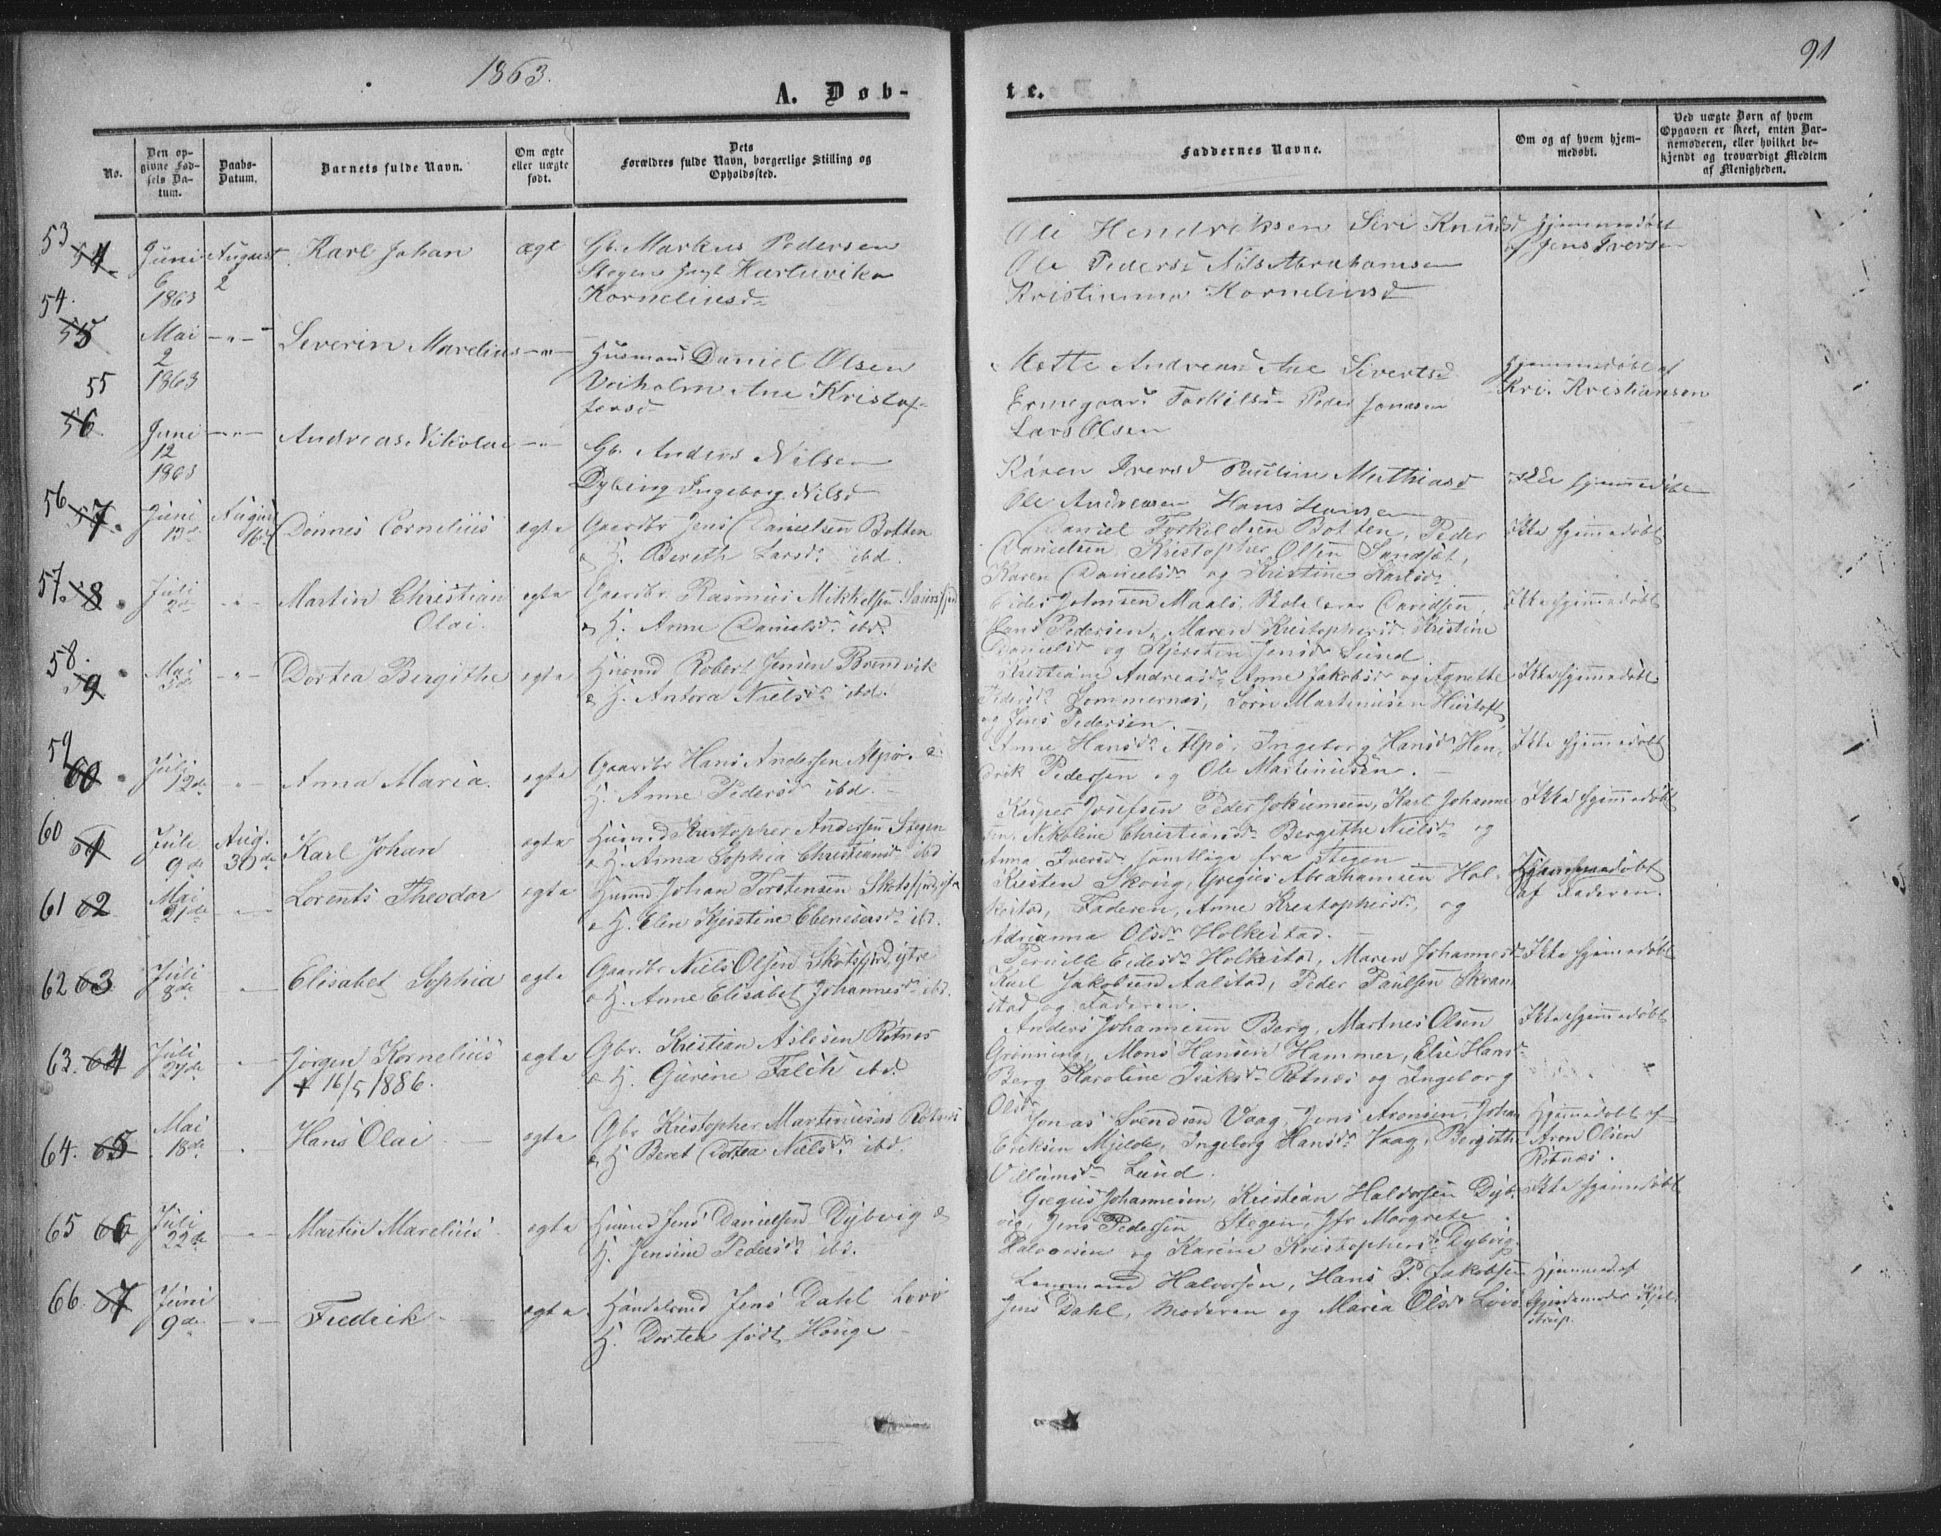 1863.
91
A. Døb-
te.
No.
Den op-
givne Fød-
sels Da-
tum.
Daabs-
Datum.
Barnets fulde Navn.
Om ægte
eller uægte
født.
Dets
Forældres fulde Navn, borgerlige Stilling og
Opholdssted.
Faddernes Navne.
Om og af hvem hjem-
medøbt.
Ved uægte Børn af hvem
Opgaven er skeet, enten Bar-
nemoderen, eller hvilket be-
kjendt og troværdigt Medlem
af Menigheden.
53 54
Juni
6
1863
August
2
Karl Johan
ægt
Gb. Markus Pedersen
Stegen Hartvika
Korneliusd
Ole Hendriksen Siri Knudsd
Ole Pedersd Nils Abrahamsen
Kristianna Korneliusd
Hjemmedøbt
af Jens Iversen
54. 55
Mai
2
1863
Severin Marelius
Husmand Daniel Olsen
Veiholm Ane Kristof-
fersd
Mette Andreasd Ane Sivertsd
Ermegaard Torkilsd Peder Jonasen
Lars Olsen
Hjemmedøbt af
Kri. Kristiansen
55 56
Juni
12
1863
Andreas Nikolai
Gb. Anders Nilsen
Dybvig Ingeborg Nilsd
Karen Iversd Pauline Mathiasd
Ole Andreasen Hans Hansen
Ikke hjemmedøbt
56 57
Juni
13de
August
16de
Dønnes Cornelius
ægte
Gaardbr Jens Danielsen Botten
& H. Bereth Larsdr ibd.
Daniel Torkeldsen Botten, Peder
Danielsen, Kristopher Olsen Sandsæt,
Karen Danielsdr og Kristine Larsdr.
Ikke hjemmedøbt
57. 58
Juli
Martin Christian
Olai.
ægte
Gaardbr Rasmus Mikkelsen
& H. Anne Danielsdr ibd.
Peder Johnsen Maalø, Skolelærer Davidsen,
Hans Pedersen, Maren Kristophersdr Kristine
Danielsdr og Kjersten Jensdr Lund.
Ikke hjemmedøbt
58. 59
Mai
Dortea Bergithe
ægte
Husmd Robert Jensen Brendvik
& H. Antora Nielsdr ibd.
Kristiane Andreasdr Anne Jakobsdr og Agnethe
Pedersdr Sommernes, Søren Martinusen Hustoft
og Jens Pedersen.
Ikke hjemmedøbt.
59 60
Juli
12de
Anna Maria.
ægte
Gaardbr Hans Andersen Alpø. &
H. Anne Pedersdr ibd.
Anne Hansdr Alpø, Ingeborg Hansdr Hen-
drik Pedersen og Ole Martinusen.
Ikke hjemmedøbt
60 61
Juli
9de
Aug.
30de
Karl Johan
ægte
Husmd Kristopher Andersen Stegen
& H. Anna Sophia Christiansdr ibd
Kasper Josefsen Peder Jokumsen, Karl Johanne-
sen, Nikoline Christiansdr Bergithe Nielsdr og
Anna Iversdr samtlige fra Stegen
Ikke hjemmedøbt
61 62
Mai
21de
Lorents Theodor
ægte
Husmd Johan Torstensen Skotsfjord
& H. Elen Kjerstine Ebenesersdr ibd.
Kristen Skoug, Gregus Abrahamsen Hol-
kestad, Faderen, Anne Kristophersdr, og
Adrianna Olsdr Holkestad.
Hjemmedøbt
af Faderen.
62 63
Juli
8de
Elisabet Sophia
ægte
Gaardbr Niels Olsen Skotsfjord ytre
& H. Anne Elisabet Johannesdr ibd.
Pernille Eidesdr Holkestad, Maren Johannesdr
Karl Jakobsen Aalstad, Peder Paulsen Skran-
stad og Faderen.
Ikke hjemmedøbt
63. 64
Juli
27de
Jørgen Kornelius
+ 16/5 1886.
ægte
Gbr. Kristian Aslesen Rotnes
& H. Gurine Falch ibd.
Anders Johannesen Berg, Martnes Olsen
Grønning, Mons Hansen Hammer, Else Hansdr
Berg Karoline Isaksdr Rotnes og Ingeborg
Olsdr
Ikke hjemmedøbt
64. 65
Mai
18de
Hans Olai
ægte
Gbr Kristopher Martinusen Rotnes
& H Beret Dortea Nielsdr ibd.
Jonas Svendsen Vaag, Jens Aronsen, Johan
Eriksen Mjelde, Ingeborg Hansdr Vaag, Bergithe
Villumsdr Lund.
Hjemmedøbt af
Aron Olsen
Rotnes.
65 66
Juli
22de
Martin Marelius
ægte
Husmd Jens Danielsen Dybvig &
H. Jensine Pedersdr ibd.
Gregus Johannesen, Kristian Haldorsen Dyb-
vig, Jens Pedersen Stegen, Jfr Margrete
Halvorsen og Karine Kristophersdr Dybvig.
Ikke hjemmedøbt
66. 67
Juni
9de
Fredrik
ægte
Handelsmd Jens Dahl Løvø
H. Dortea født Houge
Lensmand Halvorsen, Hans P. Jakobsen
Jens Dahl, Moderen og Maria Olsdr Løvø
Hjemmed af
Gjordemoder Kjel-
strup.